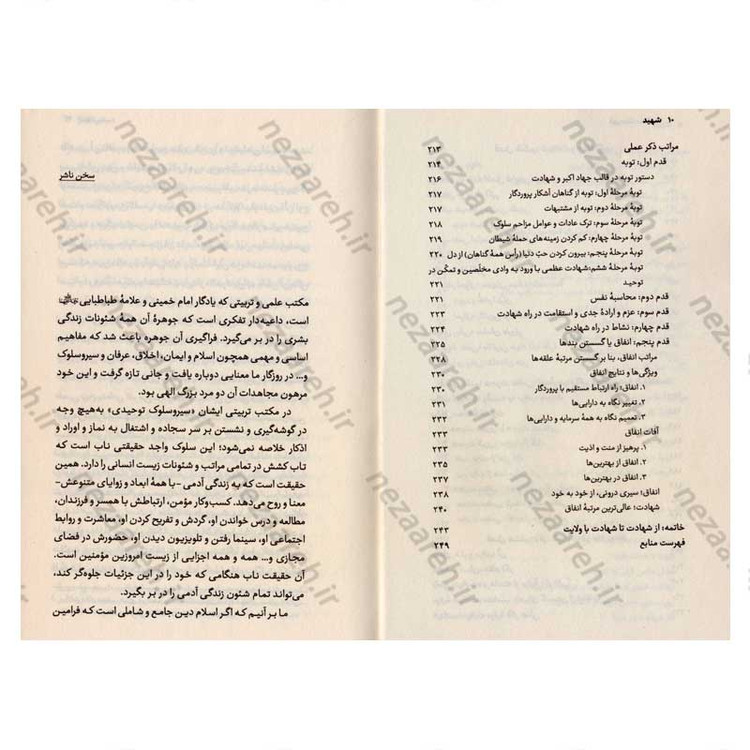 ۱۰ شهید
مراتب ذکر عملی ۲۱۳
قدم اول: توبه ۲۱۴
دستور توبه در قالب جهاد اکبر و شهادت ۲۱۶
توبهٔ مرحلهٔ اول: توبه از گناهان آشکار پروردگار ۲۱۷
توبهٔ مرحلهٔ دوم: توبه از مشتبهات ۲۱۷
توبهٔ مرحلهٔ سوم: ترک عادات و عوامل مزاحم سلوک ۲۱۸
توبهٔ مرحلهٔ چهارم: کم کردن زمینه‌های حملهٔ شیطان ۲۱۹
توبهٔ مرحلهٔ پنجم: بیرون کردن حبّ دنیا (رأس همهٔ گناهان) از دل ۲۲۰
توبهٔ مرحلهٔ ششم: شهادت عظمی با ورود به وادی مخلَصین و تمکّن در
توحید ۲۲۱
قدم دوم: محاسبهٔ نفس ۲۲۱
قدم سوم: عزم و ارادهٔ جدی و استقامت در راه شهادت ۲۲۳
قدم چهارم: نشاط در راه شهادت ۲۲۴
قدم پنجم: انفاق یا گسستن بندها ۲۲۵
مراتب انفاق، بنا بر گسستن مرتبهٔ علقه‌ها ۲۲۸
ویژگی‌ها و نتایج انفاق ۲۳۰
۱. انفاق؛ راه ارتباط مستقیم با پروردگار ۲۳۰
۲. تغییر نگاه به دارایی‌ها ۲۳۱
۳. تعمیم نگاه به همهٔ سرمایه و دارایی‌ها ۲۳۲
آفات انفاق ۲۳۳
۱. پرهیز از منت و اذیت ۲۳۳
۲. انفاق از بهترین‌ها ۲۳۵
۳. انفاق در بهترین‌ها ۲۳۷
انفاق؛ سیری درونی، از خود به خود ۲۳۸
شهادت؛ عالی‌ترین مرتبهٔ انفاق ۲۴۰
خاتمه: از شهادت تا شهادت با ولایت ۲۴۳
فهرست منابع ۲۴۹
سخن ناشر
مکتب علمی و تربیتی که یادگار امام خمینی و علامهٔ طباطبایی
است، داعیه‌دار تفکری است که جوهرهٔ آن همهٔ شئونات زندگی
بشری را در بر می‌گیرد. فراگیری آن جوهره باعث شد که مفاهیم
اساسی و مهمی همچون اسلام و ایمان، اخلاق، عرفان و سیروسلوک
و... در روزگار ما معنایی دوباره یافت و جانی تازه گرفت و این خود
مرهون مجاهدات آن دو مرد بزرگ الهی بود.
در مکتب تربیتی ایشان «سیروسلوک توحیدی» به‌هیچ وجه
در گوشه‌گیری و نشستن بر سر سجاده و اشتغال به نماز و اوراد و
اذکار خلاصه نمی‌شود؛ این سلوک واجد حقیقتی ناب است که
تاب کشش در تمامی مراتب و شئونات زیست انسانی را دارد. همین
حقیقت است که به زندگی آدمی -با همهٔ ابعاد و زوایای متنوعش-
معنا و روح می‌دهد. کسب‌وکار مؤمن، ارتباطش با همسر و فرزندان،
مطالعه و درس خواندن او، گردش و تفریح کردن او، معاشرت و روابط
اجتماعی او، سینما رفتن و تلویزیون دیدن او، حضورش در فضای
مجازی و... همه و همه اجزایی از زیست امروزین مؤمنین است.
آن حقیقت ناب هنگامی که خود را در این جزئیات جلوه‌گر کند،
می‌تواند تمام شئون زندگی آدمی را در بر بگیرد.
ما بر آنیم که اگر اسلام دین جامع و شاملی است که فرامین
nezaareh.ir